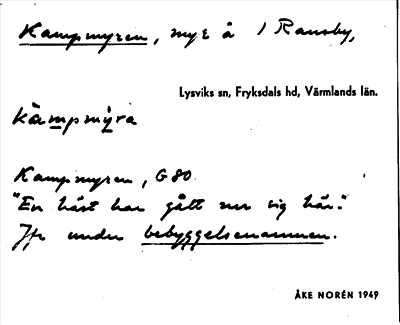 Kampmyren, myr å 1 Ransby,
Lysviks sn, Fryksdals hd, Värmlands län.
kämpmýra
Kampmyren, G80.
"En häst har gått ner sig här."
Jfr under bebyggelsenamnen.
ÅKE NORÉN 1949